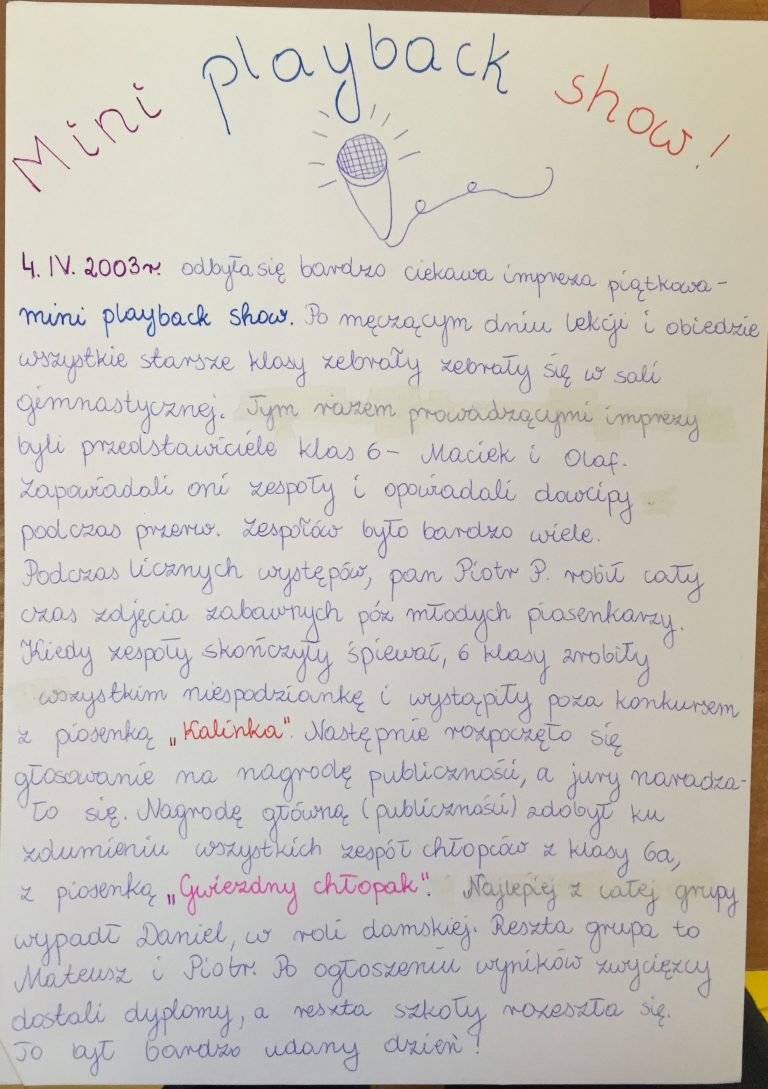 Mini playback show!
4. IV. 2003r. odbyła się bardzo ciekawa impreza piątkowa -
mini playback show. Po męczącym dniu lekcji i obiedzie
wszystkie starsze klasy zebrały zebrały się w sali
gimnastycznej. Tym razem prowadzącymi imprezy
byli przedstawiciele klas 6 - Maciek i Olaf.
Zapowiadali oni zespoły i opowiadali dowcipy
podczas przerw. Zespołów było bardzo wiele.
Podczas licznych występów, pan Piotr P. robił cały
czas zdjęcia zabawnych póz młodych piosenkarzy.
Kiedy zespoły skończyły śpiewać, 6 klasy zrobiły
wszystkim niespodziankę i wystąpiły poza konkursem
z piosenką „Kalinka". Następnie rozpoczęło się
głosowanie na nagrodę publiczności, a jury naradza-
ło się. Nagrodę główną (publiczności) zdobył ku
zdumieniu wszystkich zespół chłopców z klasy 6a,
z piosenką „Gwiezdny chłopak". Najlepiej z całej grupy
wypadł Daniel, w roli damskiej. Reszta grupa to
Mateusz i Piotr. Po ogłoszeniu wyników zwycięzcy
dostali dyplomy, a reszta szkoły rozeszła się.
To był bardzo udany dzień!